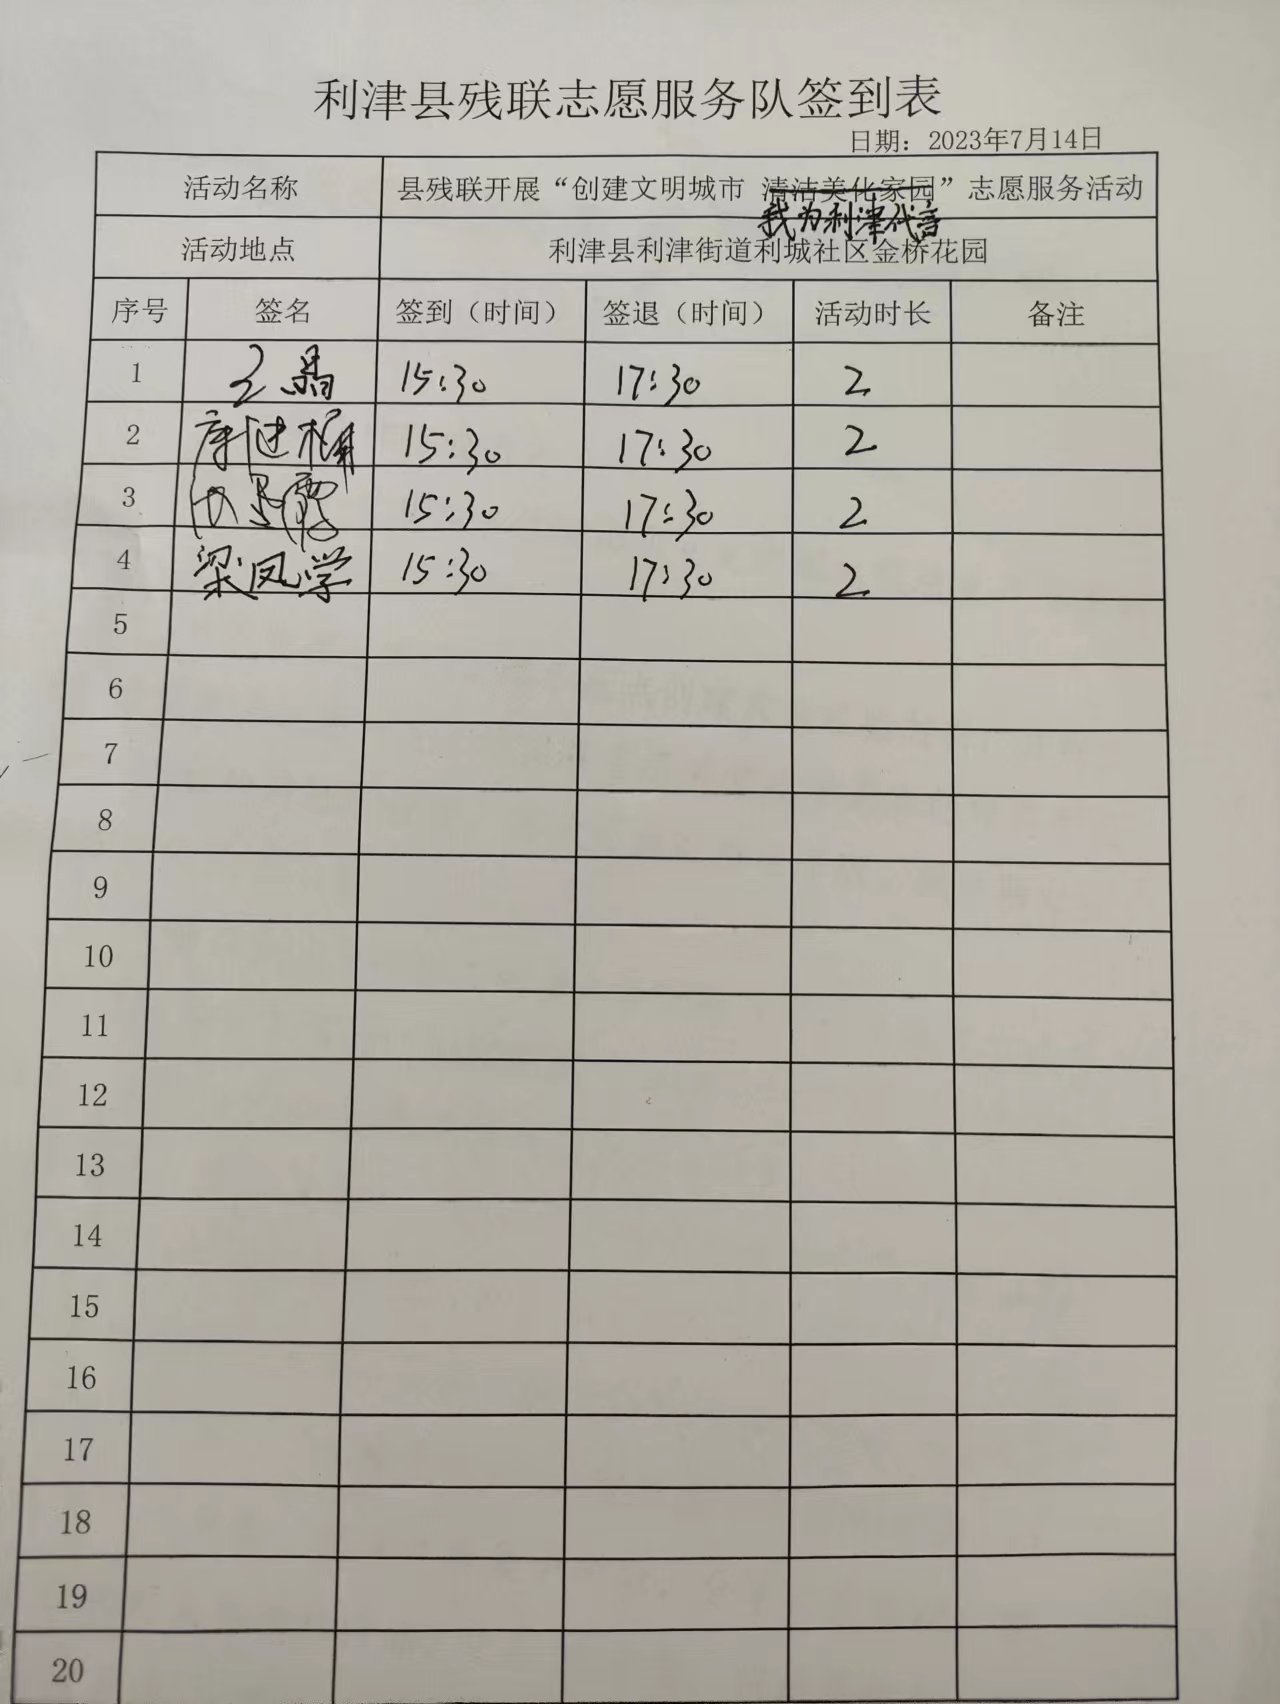 利津县残联志愿服务队签到表
日期：2023年7月14日
活动名称 县残联开展“创建文明城市 清洁美化家园”志愿服务活动
我为利津代言
活动地点 利津县利津街道利城社区金桥花园
序号 签名 签到（时间） 签退（时间） 活动时长 备注
1 王晶 15:30 17:30 2
2 15:30 17:30 2
3 15:30 17:30 2
4 梁凤学 15:30 17:30 2
5
6
7
8
9
10
11
12
13
14
15
16
17
18
19
20